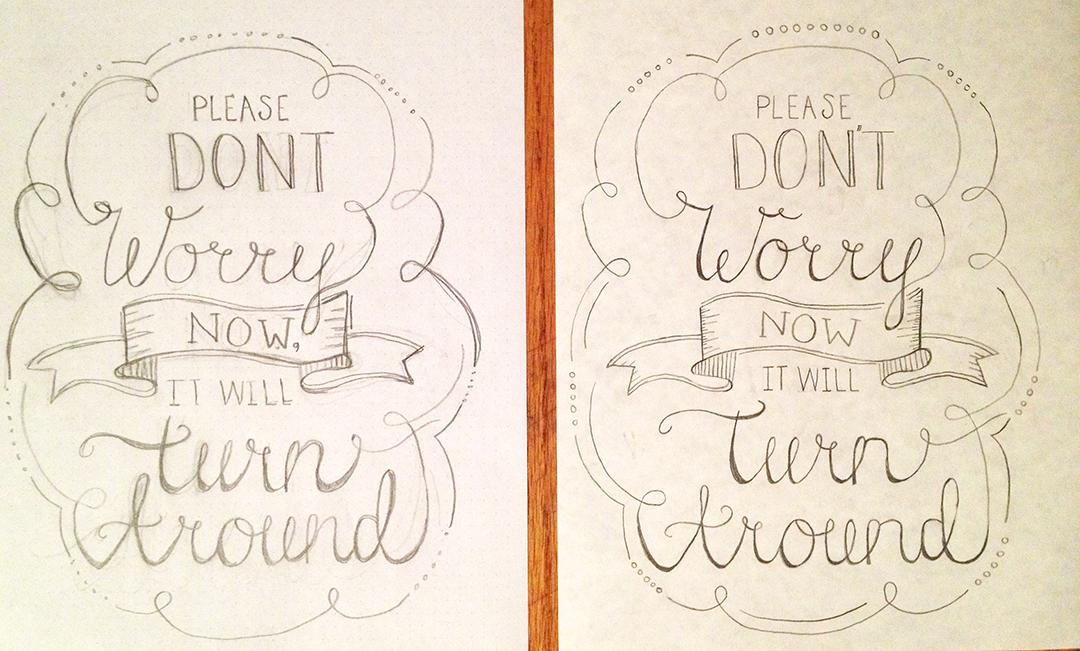 PLEASE
DONT
Worry
NOW,
IT WILL
turn
Around
PLEASE
DON'T
Worry
NOW
IT WILL
Turn
Around